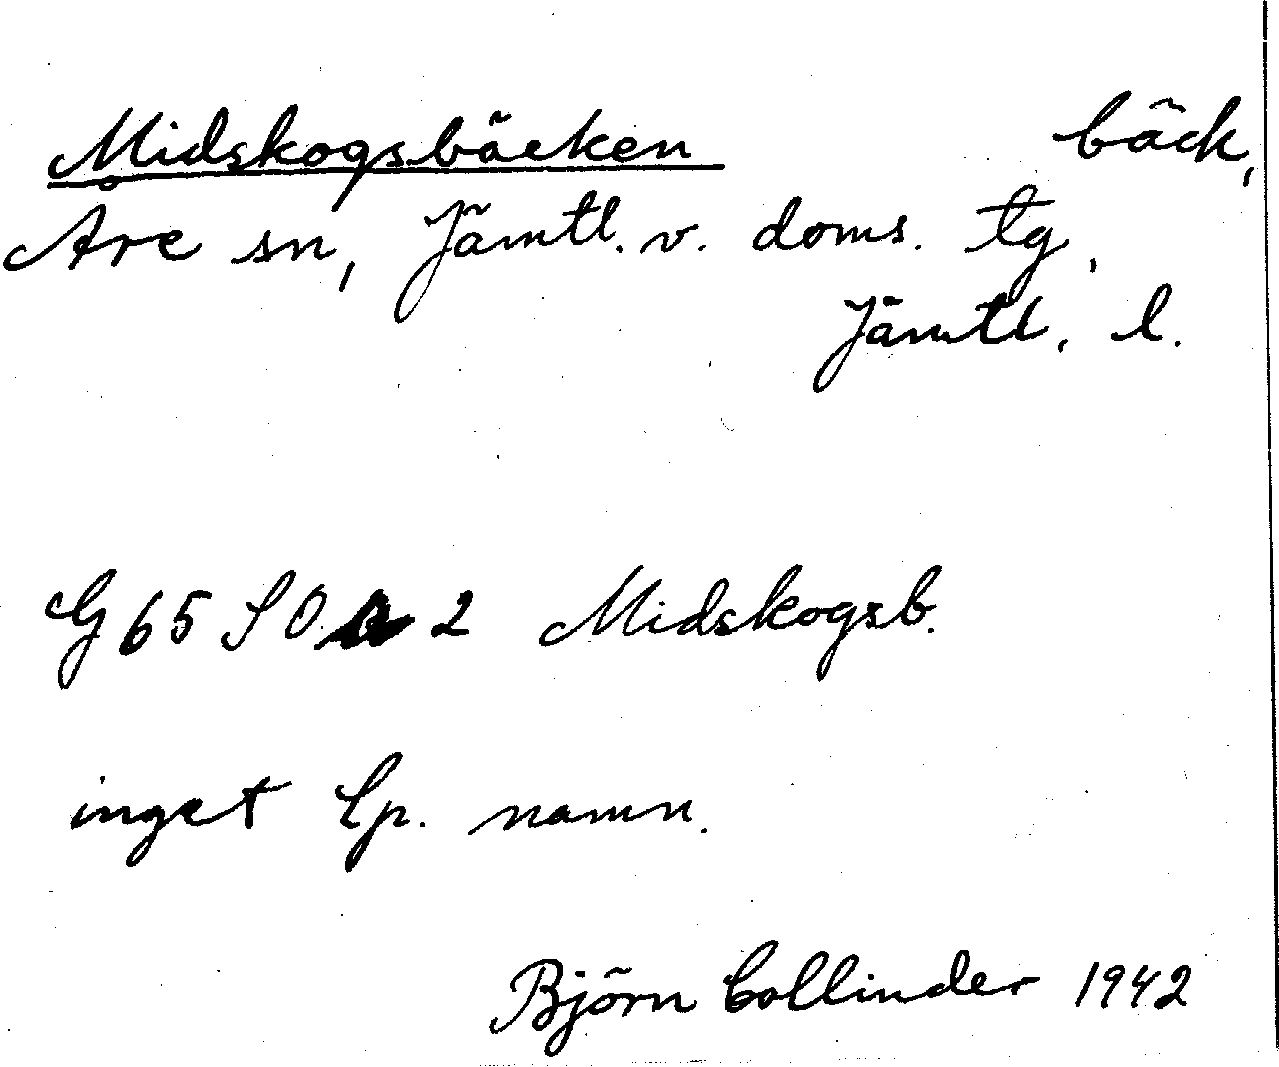 Midskogsbäcken bäck,
Åre sn, Jämtl. v. doms. tg,
Jämtl. l.
G 65 SO 2 Midskogsb.
inget lp. namn.
Björn Collinder 1942